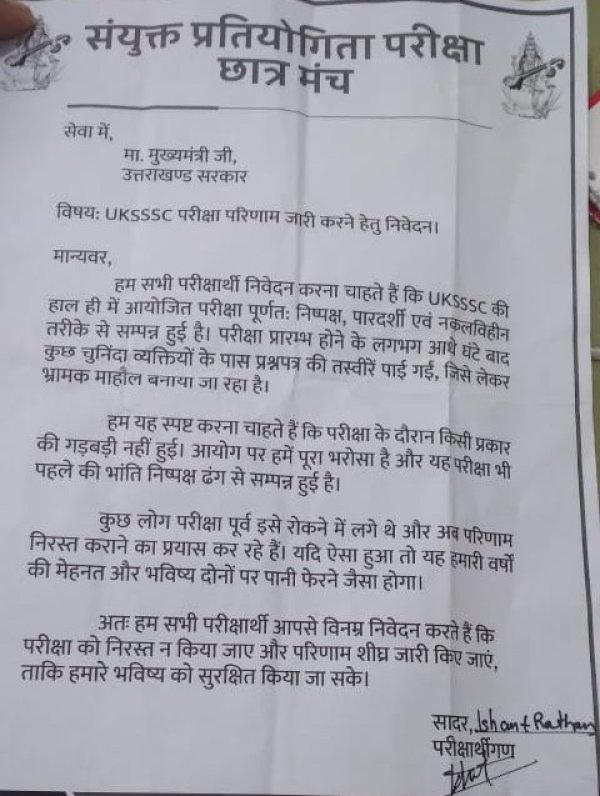 संयुक्त प्रतियोगिता परीक्षा
छात्र मंच
सेवा में,
मा. मुख्यमंत्री जी,
उत्तराखण्ड सरकार
विषय: UKSSSC परीक्षा परिणाम जारी करने हेतु निवेदन।
मान्यवर,
हम सभी परीक्षार्थी निवेदन करना चाहते हैं कि UKSSSC की
हाल ही में आयोजित परीक्षा पूर्णत: निष्पक्ष, पारदर्शी एवं नकलविहीन
तरीके से सम्पन्न हुई है। परीक्षा प्रारम्भ होने के लगभग आधे घंटे बाद
कुछ चुनिंदा व्यक्तियों के पास प्रश्नपत्र की तस्वीरें पाई गईं, जिसे लेकर
भ्रामक माहौल बनाया जा रहा है।
हम यह स्पष्ट करना चाहते हैं कि परीक्षा के दौरान किसी प्रकार
की गड़बड़ी नहीं हुई। आयोग पर हमें पूरा भरोसा है और यह परीक्षा भी
पहले की भांति निष्पक्ष ढंग से सम्पन्न हुई है।
कुछ लोग परीक्षा पूर्व इसे रोकने में लगे थे और अब परिणाम
निरस्त कराने का प्रयास कर रहे हैं। यदि ऐसा हुआ तो यह हमारी वर्षों
की मेहनत और भविष्य दोनों पर पानी फेरने जैसा होगा।
अतः हम सभी परीक्षार्थी आपसे विनम्र निवेदन करते हैं कि
परीक्षा को निरस्त न किया जाए और परिणाम शीघ्र जारी किए जाएं,
ताकि हमारे भविष्य को सुरक्षित किया जा सके।
सादर, Ishant
परीक्षार्थीगण